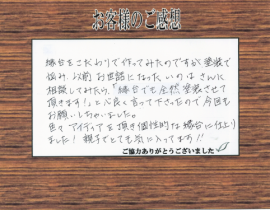 お客様のご感想
縁台をこだわりで作ってみたのですが塗装で
悩み、以前お世話になったいのはさんに
相談してみたら、「縁台でも全然塗装させて
頂きます!」と心良く言って下さったので今回も
お願いしちゃいました。
色々アイディアを頂き個性的な縁台に仕上り
ました!親子でとても気に入ってます!!
ご協力ありがとうございました